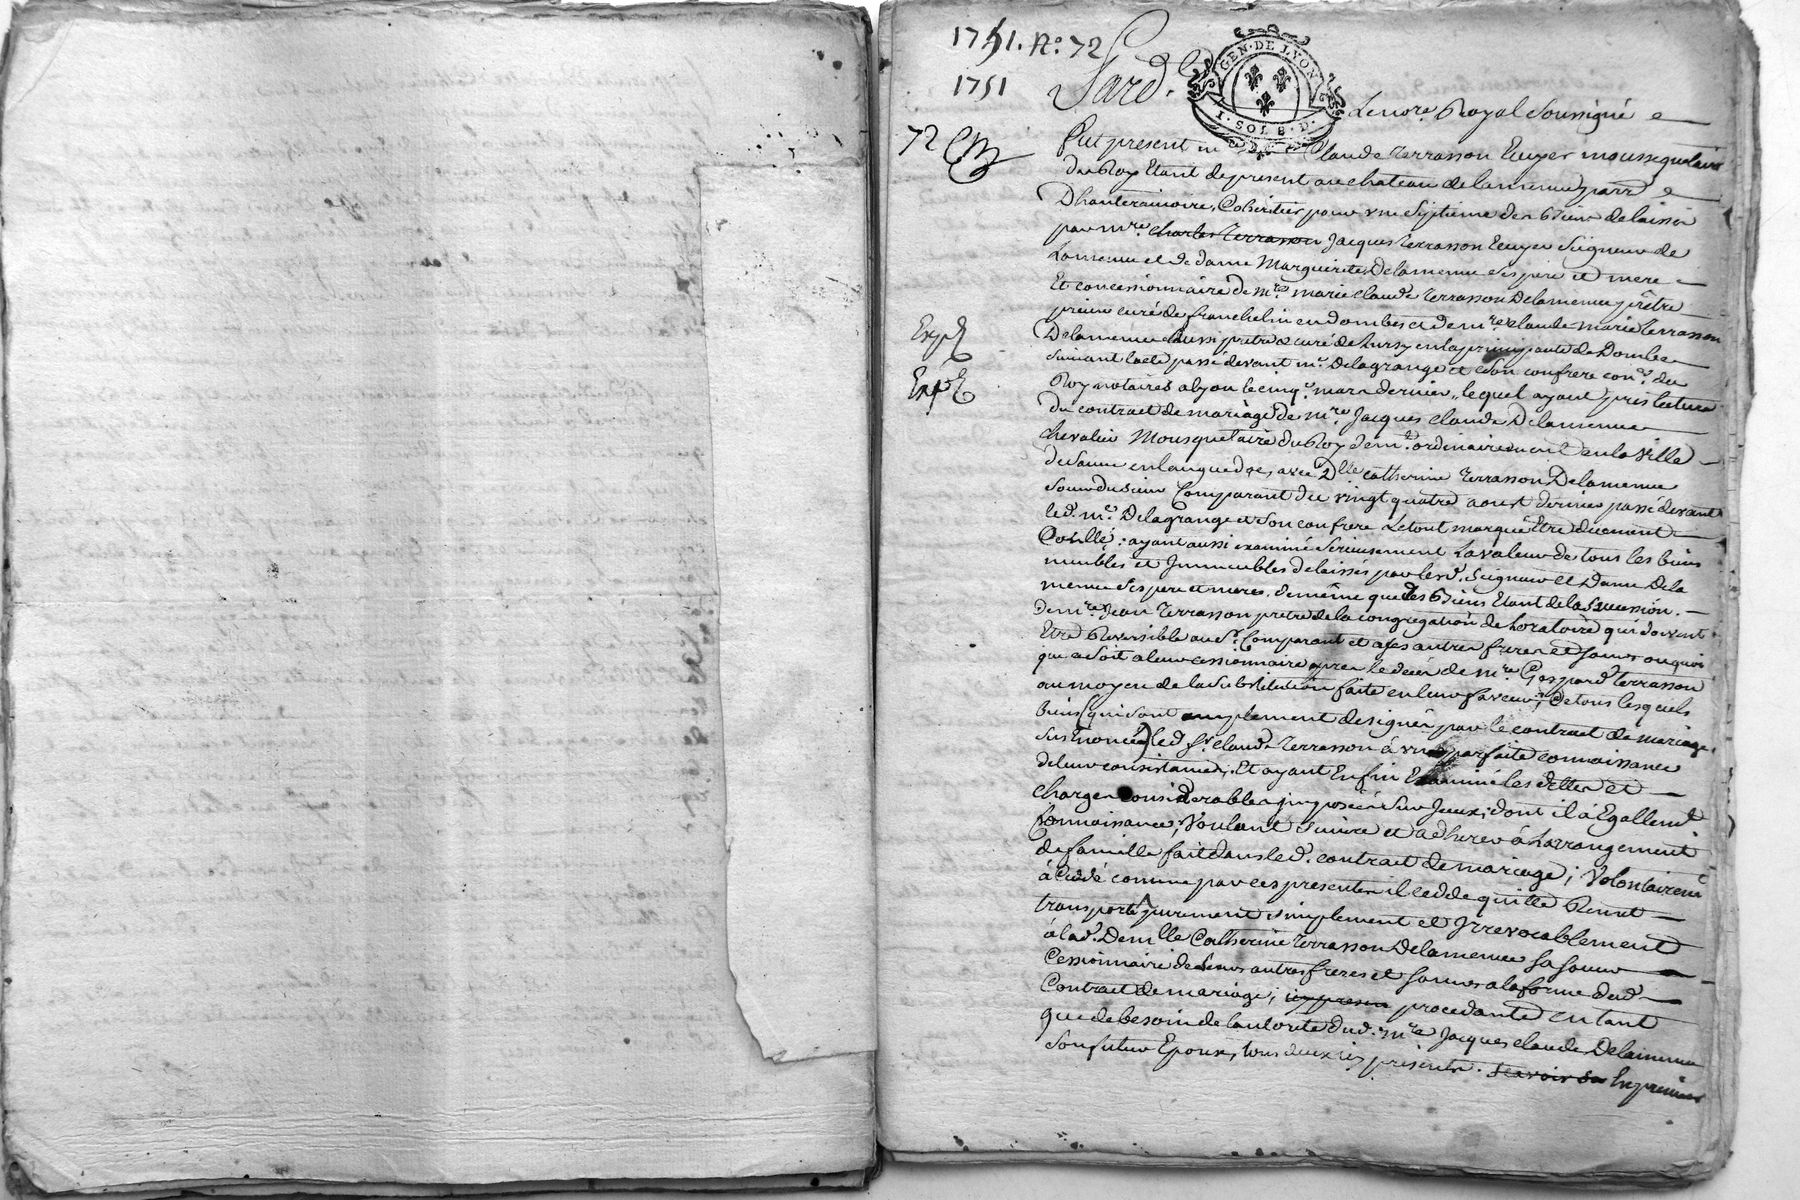 1751. N.o 72
1751
Sard.
GEN. DE LYON
1. SOL 8. D.
72
Le nore. Royal Soussigné
Fut présent mre Claude Terrasson Ecuyer mousquetaire
du Roy Etant de present au chateau de lamenue parr
Dhauterivoire, Coheritier pour une Septieme des biens delaissés
par mre charles Terrasson Jacques Terrasson Ecuyer Seigneur de
Lamenue et de dame Marguerite Delamenue ses pere et mere
Et concessionnaire de mre marie claude Terrasson Delamenue prêtre
prieur curé de franchelin en dombes et de mre claude marie terrasson
Delamenue aussi pretre & curé de lursy en la principauté de Dombe
Expd
suivant lacte passé devant me. Delagrange et son confrere cons. du
Expd
Roy notaires a lyon le cinqe. mars dernier, lequel ayant pris lecture
du contract de mariage de mre Jacques claude Delamenue
chevalier Mousquetaire du Roy demt. ordinairement en la ville
de Sauve en languedoc, avec Dlle catherine Terrasson Delamenue
Soeur du sieur Comparant du vingt quatre aoust dernier passé devant
led. me. Delagrange et son confrere Le tout marqué Etre duement
Controllé; ayant aussi examiné serieusement La valeur de tous les biens
meubles et Immeubles delaissés par lesd. Seigneur et Dame Dela
menue ses pere et mere, de même que les biens Etant de la Succession
de mre Jean Terrasson pretre de la congregation de Loratoire qui doivent
Etre Reversible au Sr. Comparant et a ses autres freres et soeurs ou quoi
que ce soit a leur cessionnaire apres le deces de mre Gaspard Terrasson
au moyen de la substitution faite en leur faveur, de tous lesquels
biens (qui sont amplement designés par le contract de mariage
sus Enoncé) led. Sr. claude Terrasson à une parfaite connoissance
de leur consistance; Et ayant Enfin Examiné les dettes et
charges considerables imposées sur Jceux, dont il à Egallemt
Connoissance; Voulant suivre et adherer à Larrangement
de famille fait dans led. contract de mariage; Volontairemt
à Ceddé comme par ces presentes il cedde quitte Remet
transporte purement simplement et Irrevocablement
à lad. Demlle Catherine Terrasson Delamenue sa soeur
Cessionnaire de ses autres freres et soeurs a la forme dud.
Contract de mariage; icy presen procedante en tant
que de besoin de lautorité dud. mre Jacques claude Delamenue
son futur Epoux, tous deux icy présents. scavoir sa En premier